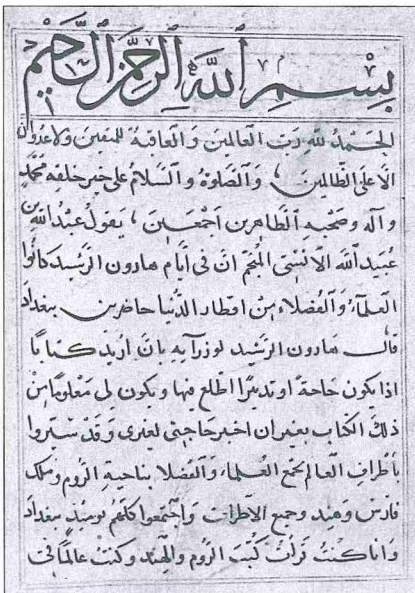 بِسْمِ ٱللَّهِ ٱلرَّحْمَٰنِ ٱلرَّحِيمِ
الحمدُ للهِ رَبِّ العالمين وَالعاقبة للمتقين ولا عُدوان
الّا على الظّالمين، وَالصلوة وَالسّلامُ على خير خلقه محمّدٍ
وآله وصَحْبه الطاهرين اَجمعَين، يقول عبدُ الله بن
عُبيد الله المنجّم ان فى أيّام هارون الرّشيد كانوا
العلمآءُ وَالفضلاء مِن اقطار الدّنيا حاضرين ببغداد
قال هارون الرّشيد لوزرآيهِ بان اريد كتابًا
اذا يكون حاجة او تدبيرًا اطّلع فيها ويكون لى مَعلومًا مِن
ذلك الكتاب بغير ان اخبر حاجتى لغيرى وَقد سَيّروا
بأطرافِ العالم بجمع العُلماء وَالفضلا بناحية الرُّوم ومُلك
فارس وهِند وجميع الاطرات وَاجتمعوا كلّهُم يومئذٍ ببغداد
وانا كنتُ قرأت كتبَ الرُّوم والهند وكنت عالمًا فى